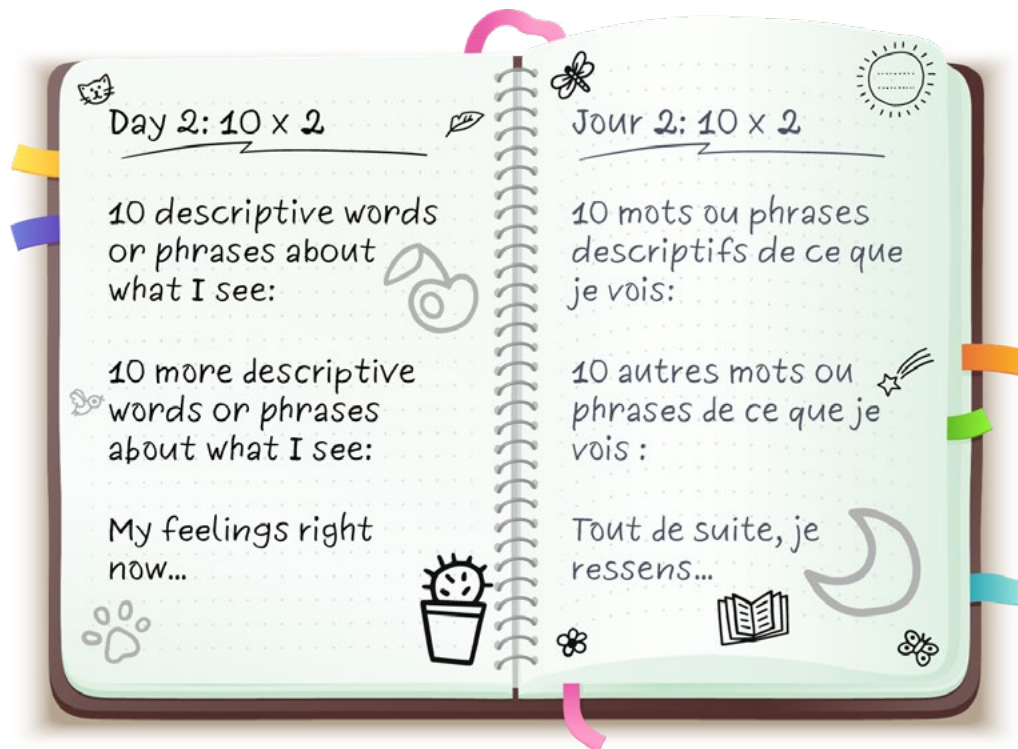 Day 2: 10 x 2
10 descriptive words
or phrases about
what I see:
10 more descriptive
words or phrases
about what I see:
My feelings right
now...
Jour 2: 10 x 2
10 mots ou phrases
descriptifs de ce que
je vois:
10 autres mots ou
phrases de ce que je
vois :
Tout de suite, je
ressens...